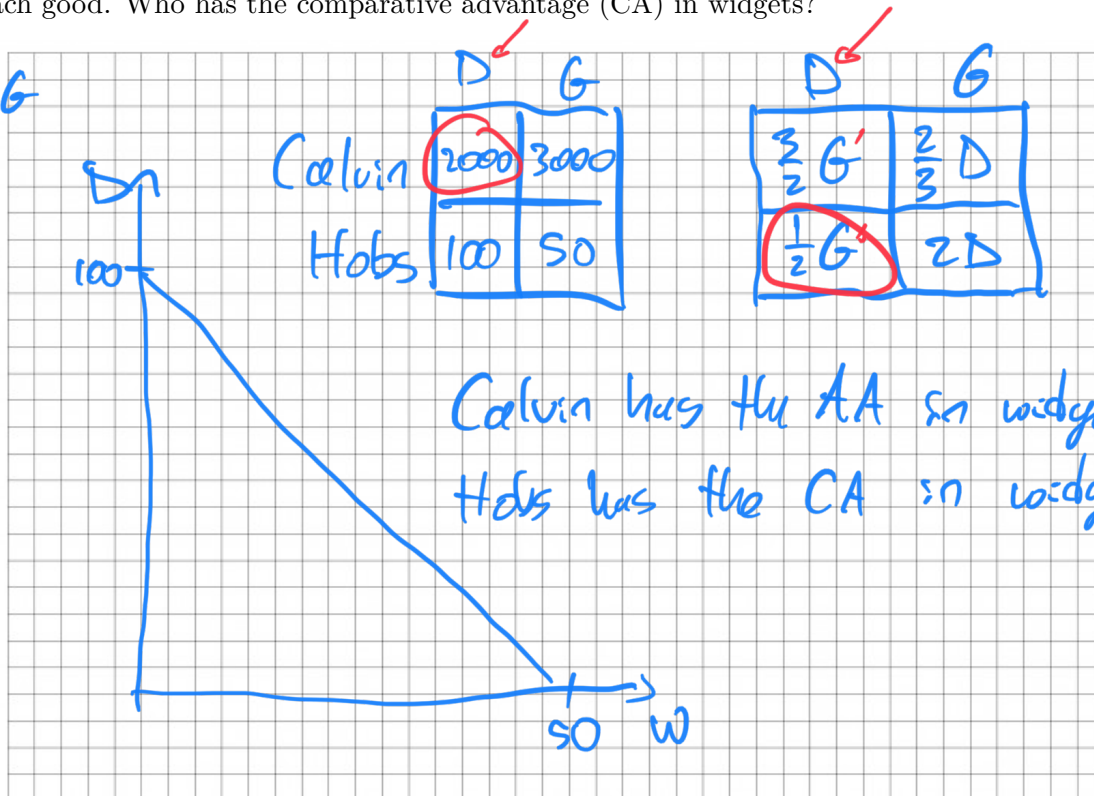 ach good. Who has the comparative advantage (CA) in widgets?
D G
D G
G
Calvin 2000 3000
3/2 G 2/3 D
D
Hobs 100 50
1/2 G 2D
100
Calvin has the AA in widg
Hobs has the CA in widg
50 W